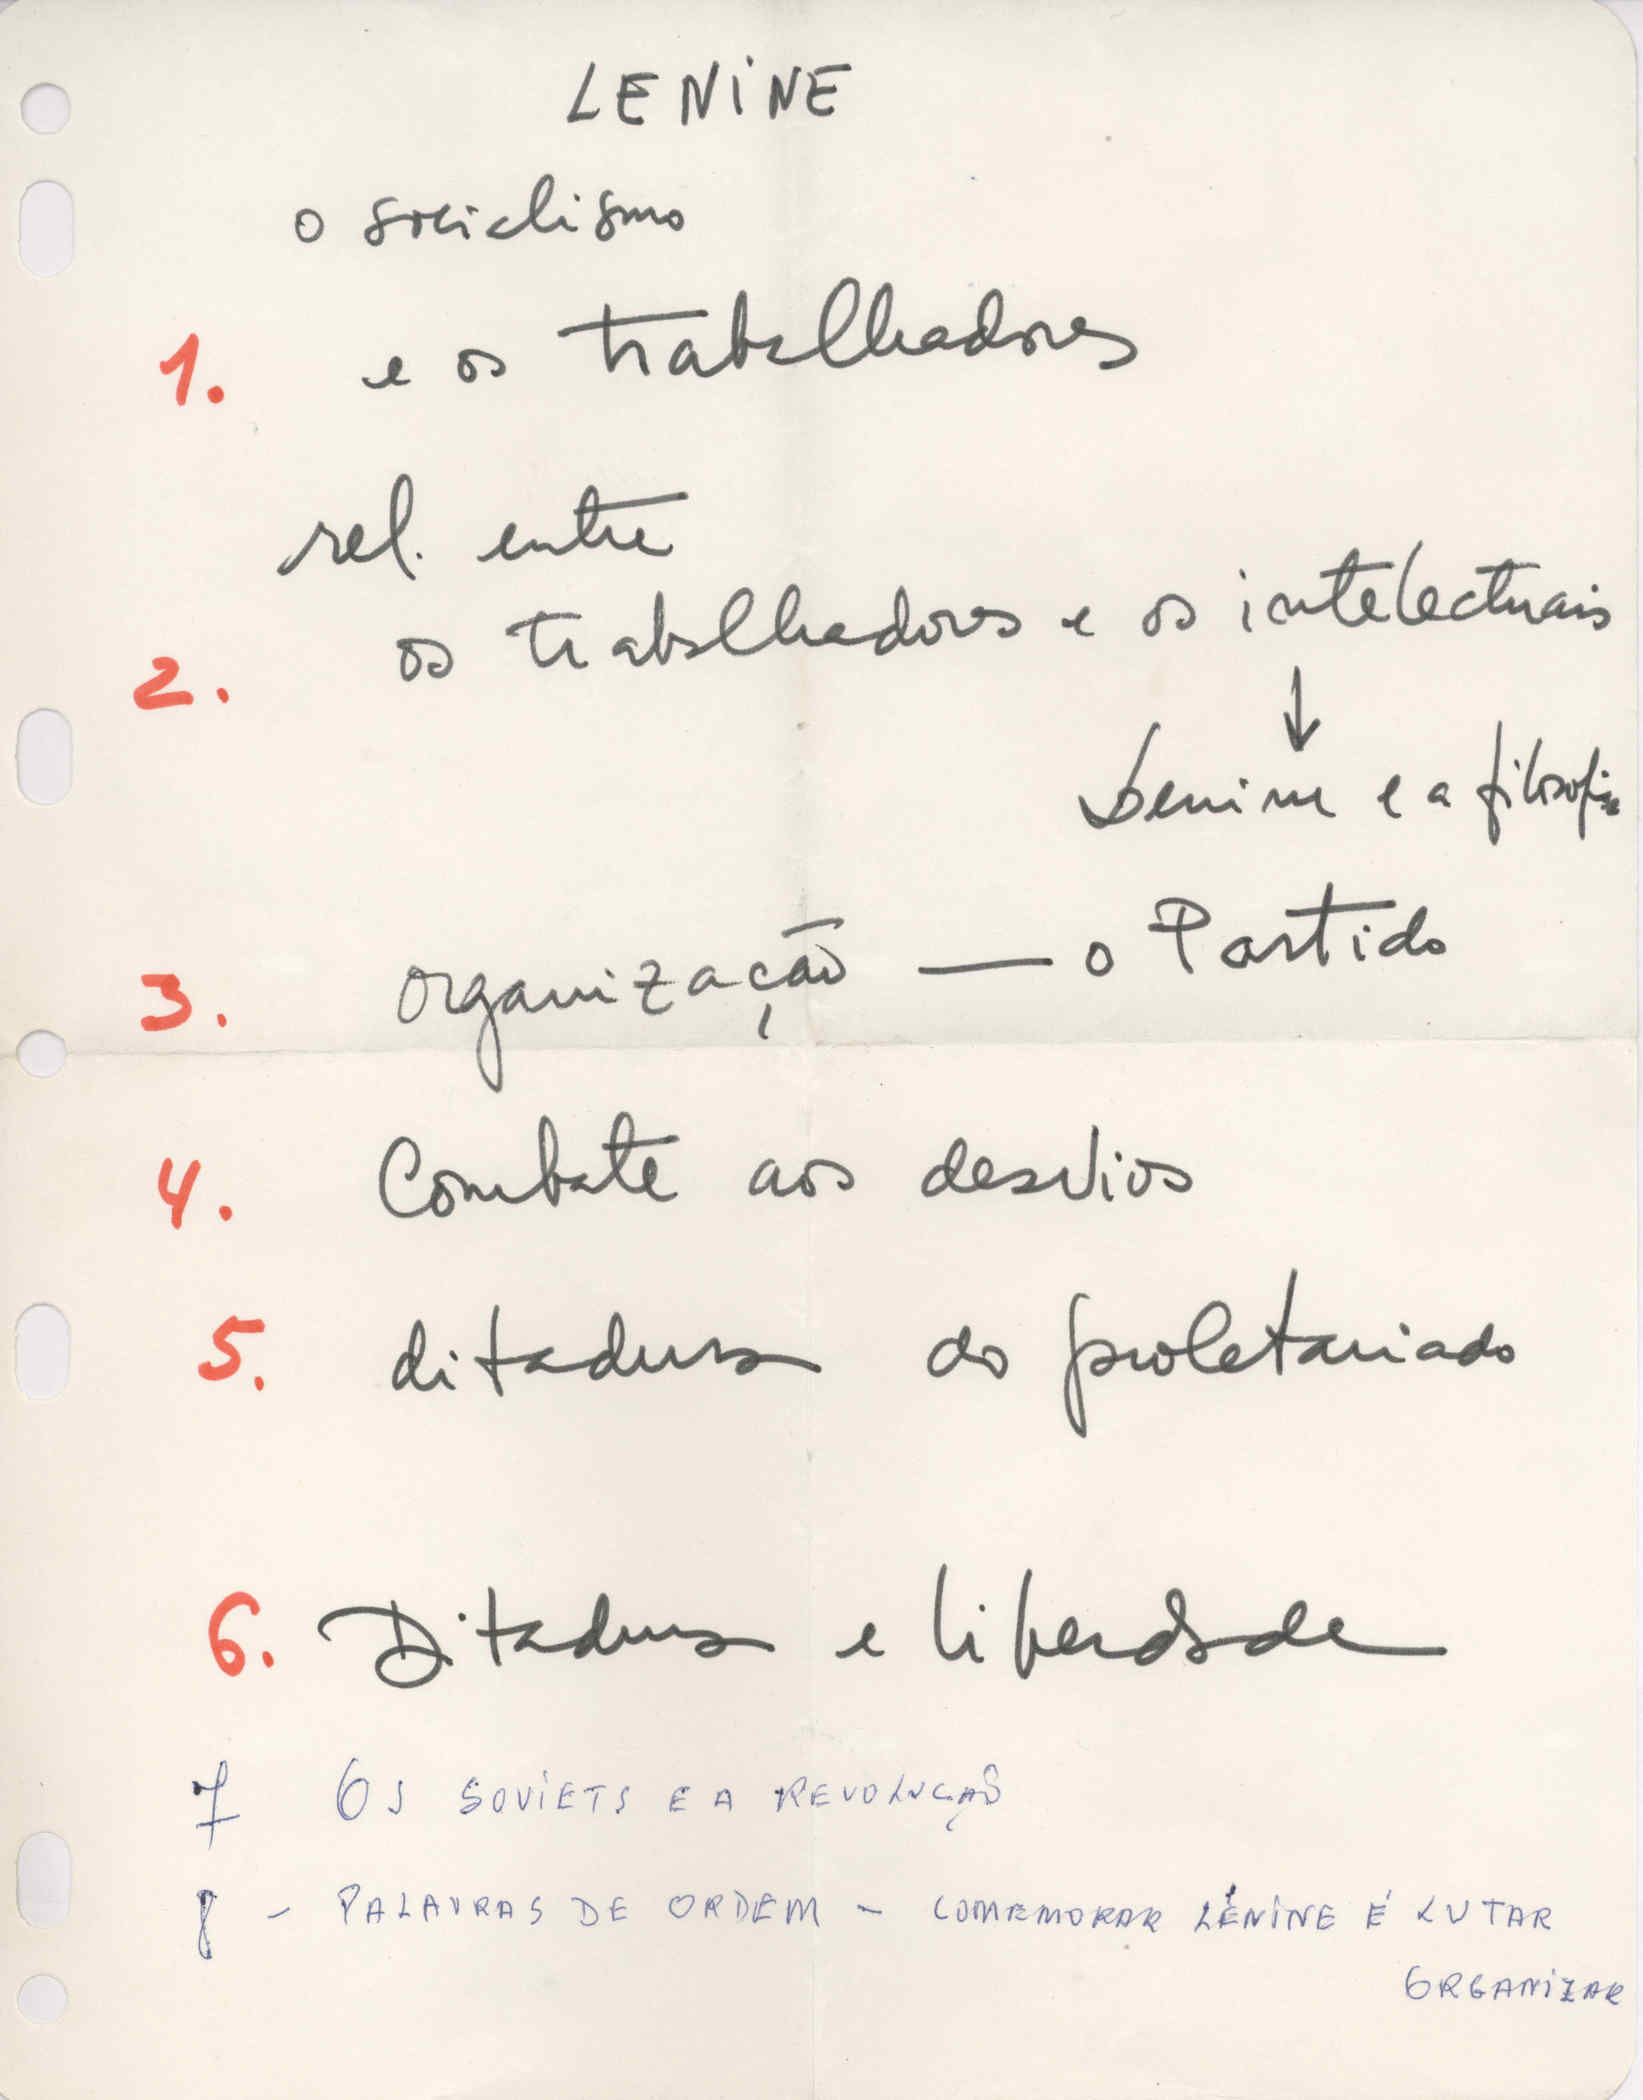 LENINE
o socialismo
1. e os trabalhadores
rel. entre
2. os trabalhadores e os intelectuais
↓
Lenine e a filosofia
3. organização — o Partido
4. Combate aos desvios
5. ditadura do proletariado
6. Ditadura e liberdade
7 OS SOVIETS E A REVOLUÇÃO
8 - PALAVRAS DE ORDEM - COMEMORAR LÉNINE É LUTAR
ORGANIZAR